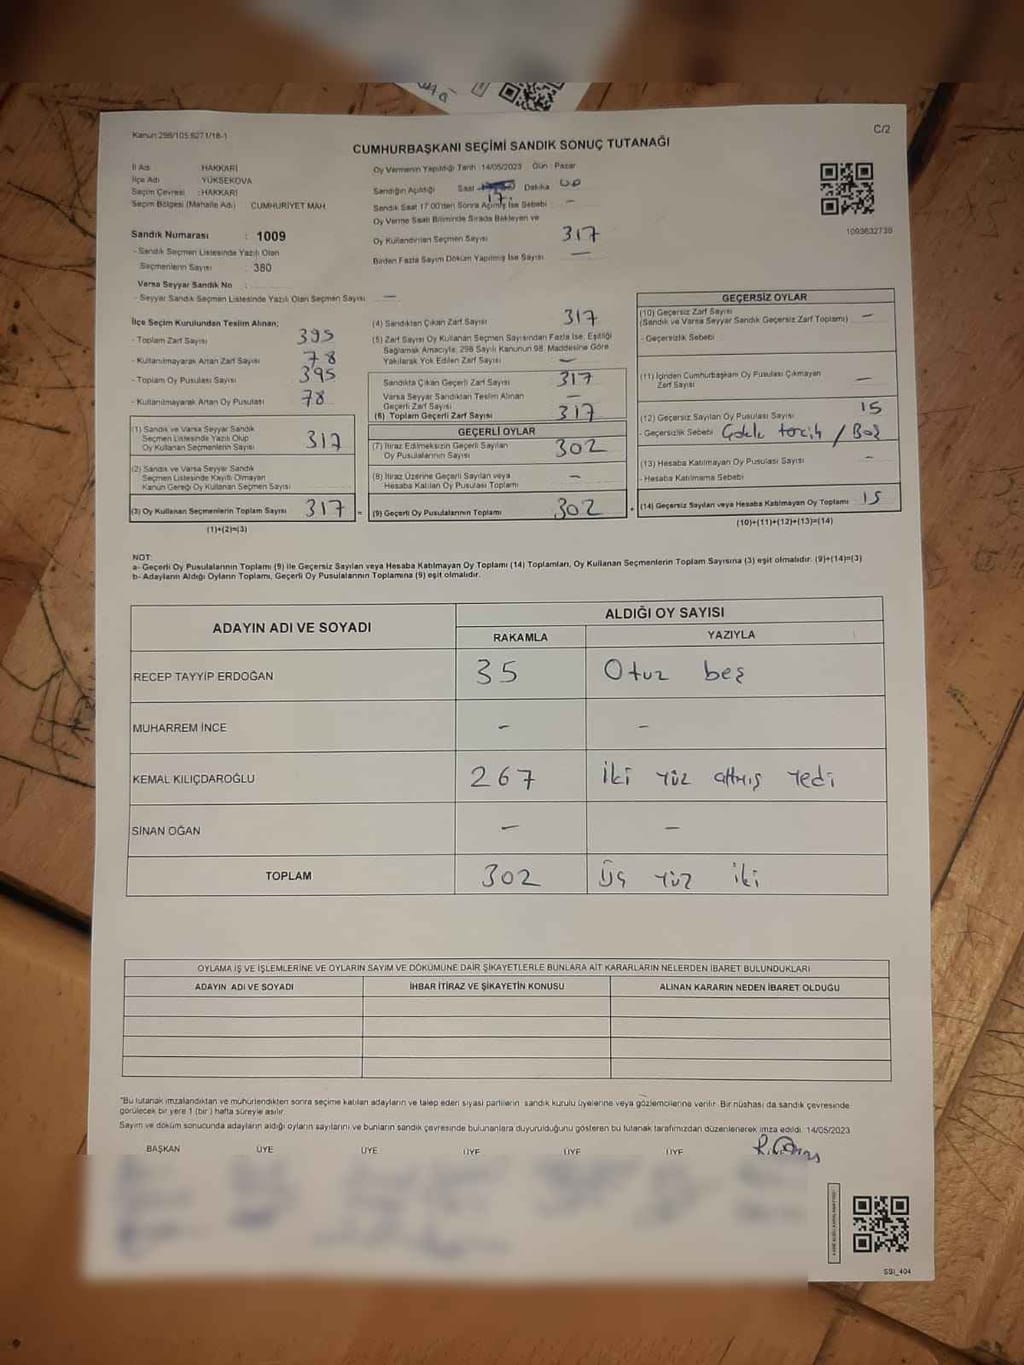 Kanun:298/105;6271/18-1
C/2
CUMHURBAŞKANI SEÇİMİ SANDIK SONUÇ TUTANAĞI
İl Adı : HAKKARİ
İlçe Adı : YÜKSEKOVA
Seçim Çevresi : HAKKARİ
Seçim Bölgesi (Mahalle Adı) CUMHURİYET MAH.
Oy Vermenin Yapıldığı Tarih :14/05/2023 Gün : Pazar
Sandığın Açıldığı Saat 17 Dakika 00
Sandık Saat 17:00'den Sonra Açılmış İse Sebebi -
Oy Verme Saati Bitiminde Sırada Bekleyen ve
Oy Kullandırılan Seçmen Sayısı 317
Birden Fazla Sayım Döküm Yapılmış İse Sayısı -
1093632739
Sandık Numarası : 1009
- Sandık Seçmen Listesinde Yazılı Olan
Seçmenlerin Sayısı : 380
Varsa Seyyar Sandık No :
- Seyyar Sandık Seçmen Listesinde Yazılı Olan Seçmen Sayısı -
İlçe Seçim Kurulundan Teslim Alınan;
- Toplam Zarf Sayısı 395
- Kullanılmayarak Artan Zarf Sayısı 78
- Toplam Oy Pusulası Sayısı 395
- Kullanılmayarak Artan Oy Pusulası 78
(1) Sandık ve Varsa Seyyar Sandık
Seçmen Listesinde Yazılı Olup
Oy Kullanan Seçmenlerin Sayısı 317
(2) Sandık ve Varsa Seyyar Sandık
Seçmen Listesinde Kayıtlı Olmayan
Kanun Gereği Oy Kullanan Seçmen Sayısı
(3) Oy Kullanan Seçmenlerin Toplam Sayısı 317 =
(1)+(2)=(3)
(4) Sandıktan Çıkan Zarf Sayısı 317
(5) Zarf Sayısı Oy Kullanan Seçmen Sayısından Fazla İse; Eşitliği
Sağlamak Amacıyla; 298 Sayılı Kanunun 98. Maddesine Göre
Yakılarak Yok Edilen Zarf Sayısı -
Sandıkta Çıkan Geçerli Zarf Sayısı 317
Varsa Seyyar Sandıktan Teslim Alınan
Geçerli Zarf Sayısı -
(6) Toplam Geçerli Zarf Sayısı 317
GEÇERLİ OYLAR
(7) İtiraz Edilmeksizin Geçerli Sayılan
Oy Pusulalarının Sayısı 302
(8) İtiraz Üzerine Geçerli Sayılan veya
Hesaba Katılan Oy Pusulası Toplamı -
(9) Geçerli Oy Pusulalarının Toplamı 302 +
GEÇERSİZ OYLAR
(10) Geçersiz Zarf Sayısı
(Sandık ve Varsa Seyyar Sandık Geçersiz Zarf Toplamı) -
- Geçersizlik Sebebi
(11) İçinden Cumhurbaşkanı Oy Pusulası Çıkmayan
Zarf Sayısı -
(12) Geçersiz Sayılan Oy Pusulası Sayısı 15
- Geçersizlik Sebebi Çoklu tercih / Boş
(13) Hesaba Katılmayan Oy Pusulası Sayısı -
- Hesaba Katılmama Sebebi
(14) Geçersiz Sayılan veya Hesaba Katılmayan Oy Toplamı 15
(10)+(11)+(12)+(13)=(14)
NOT:
a- Geçerli Oy Pusulalarının Toplamı (9) ile Geçersiz Sayılan veya Hesaba Katılmayan Oy Toplamı (14) Toplamları, Oy Kullanan Seçmenlerin Toplam Sayısına (3) eşit olmalıdır. (9)+(14)=(3)
b- Adayların Aldığı Oyların Toplamı, Geçerli Oy Pusulalarının Toplamına (9) eşit olmalıdır.
ADAYIN ADI VE SOYADI
ALDIĞI OY SAYISI
RAKAMLA YAZIYLA
RECEP TAYYİP ERDOĞAN 35 Otuz beş
MUHARREM İNCE - -
KEMAL KILIÇDAROĞLU 267 İki Yüz altmış Yedi
SİNAN OĞAN - -
TOPLAM 302 Üç Yüz iki
OYLAMA İŞ VE İŞLEMLERİNE VE OYLARIN SAYIM VE DÖKÜMÜNE DAİR ŞİKAYETLERLE BUNLARA AİT KARARLARIN NELERDEN İBARET BULUNDUKLARI
ADAYIN ADI VE SOYADI İHBAR İTİRAZ VE ŞİKAYETİN KONUSU ALINAN KARARIN NEDEN İBARET OLDUĞU
"Bu tutanak imzalandıktan ve mühürlendikten sonra seçime katılan adayların ve talep eden siyasi partilerin sandık kurulu üyelerine veya gözlemcilerine verilir. Bir nüshası da sandık çevresinde
görülecek bir yere 1 (bir) hafta süreyle asılır.
Sayım ve döküm sonucunda adayların aldığı oyların sayılarını ve bunların sandık çevresinde bulunanlara duyurulduğunu gösteren bu tutanak tarafımızdan düzenlenerek imza edildi. 14/05/2023
BAŞKAN ÜYE ÜYE ÜYE ÜYE ÜYE
SSI_404